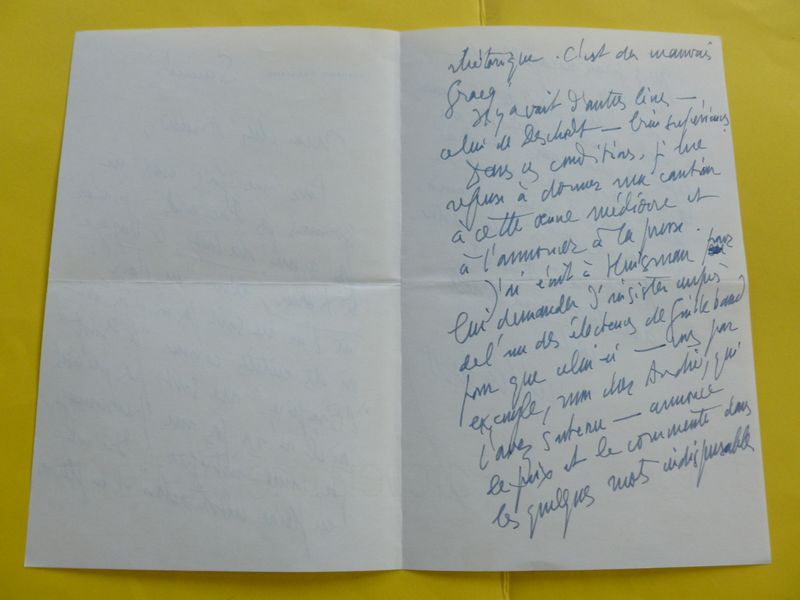 rhétorique. C'est du mauvais
Gracq!
Il y avait d'autres livres —
celui de Descholt — bien supérieurs.
Dans ces conditions, je me
refuse à donner ma caution
à cette œuvre médiocre et
à l'annoncer à la presse.
J'ai écrit à Huisman pour
lui demander d'insister auprès
de l'un des électeurs de Guillebaud
pour que celui-ci — vous par
exemple, mon cher André, qui
l'avez soutenu — annonce
le prix et le commente dans
les quelques mots indispensables